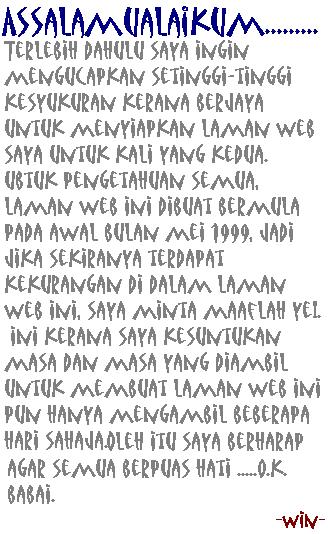 ASSALAMUALAIKUM.........
TERLEBIH DAHULU SAYA INGIN
MENGUCAPKAN SETINGGI-TINGGI
KESYUKURAN KERANA BERJAYA
UNTUK MENYIAPKAN LAMAN WEB
SAYA UNTUK KALI YANG KEDUA.
UBTUK PENGETAHUAN SEMUA,
LAMAN WEB INI DIBUAT BERMULA
PADA AWAL BULAN MEI 1999, JADI
JIKA SEKIRANYA TERDAPAT
KEKURANGAN DI DALAM LAMAN
WEB INI, SAYA MINTA MAAFLAH YE!.
INI KERANA SAYA KESUNTUKAN
MASA DAN MASA YANG DIAMBIL
UNTUK MEMBUAT LAMAN WEB INI
PUN HANYA MENGAMBIL BEBERAPA
HARI SAHAJA.OLEH ITU SAYA BERHARAP
AGAR SEMUA BERPUAS HATI .....O.K
BABAI.
-WIN-